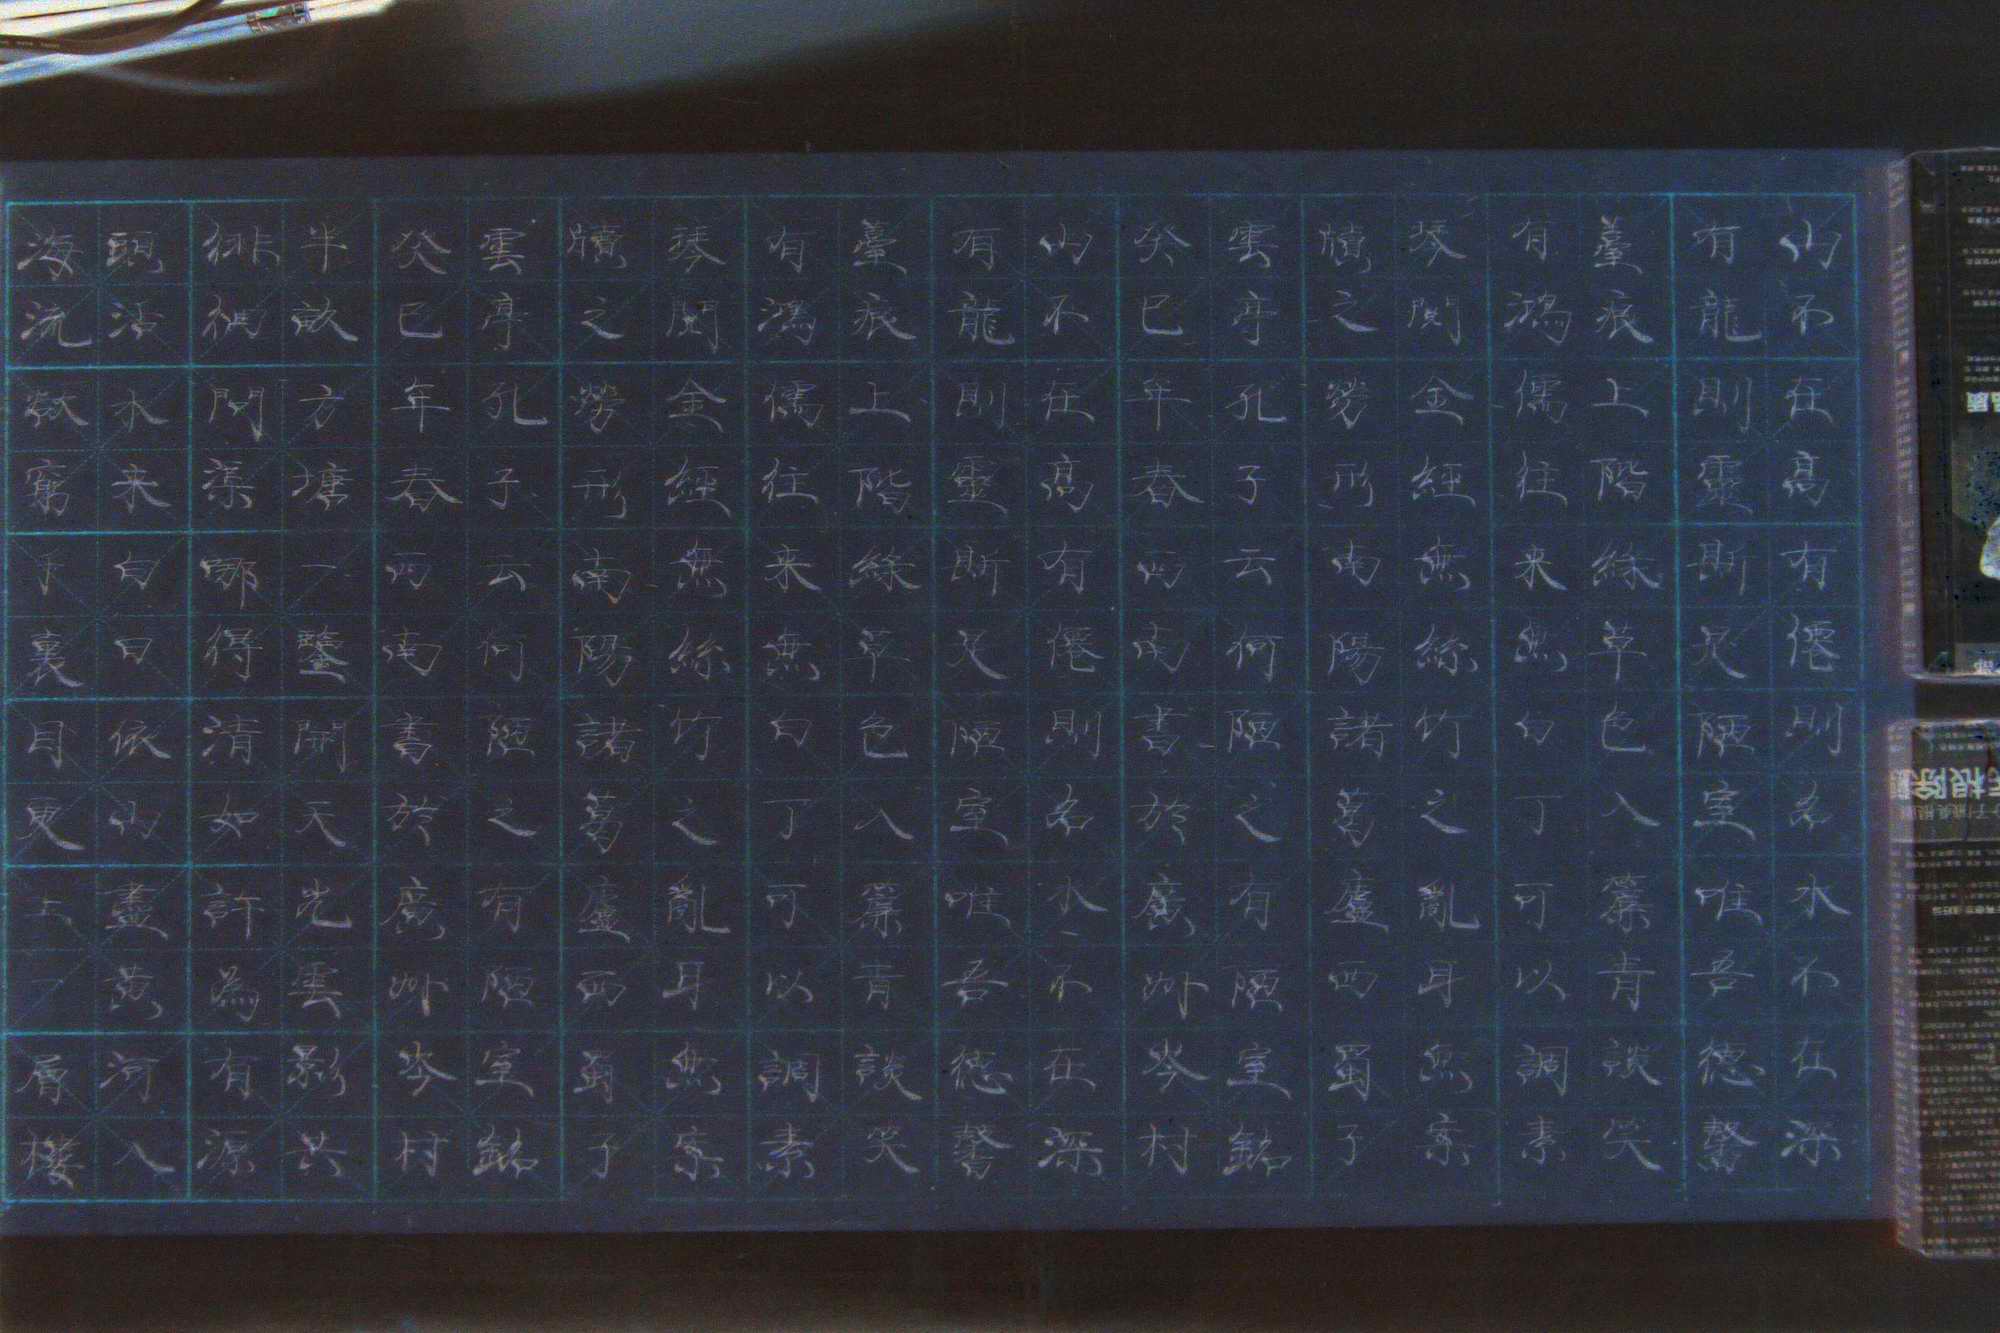 山不在高有僊則名水不在深
有龍則靈斯是陋室唯吾德馨
薹痕上階綠草色入簾青談笑
有鴻儒往来無白丁可以調素
琴閱金經無絲竹之亂耳無案
牘之勞形南陽諸葛廬西蜀子
雲亭孔子云何陋之有陋室銘
癸巳年春西南書於廣州岑村
山不在高有僊則名水不在深
有龍則靈斯是陋室唯吾德馨
薹痕上階綠草色入簾青談笑
有鴻儒往来無白丁可以調素
琴閱金經無絲竹之亂耳無案
牘之勞形南陽諸葛廬西蜀子
雲亭孔子云何陋之有陋室銘
癸巳年春西南書於廣州岑村
半畝方塘一鑒開天光雲影共
徘徊問渠哪得清如許為有源
頭活水来白日依山盡黃河入
海流欲窮千裏目更上一層樓